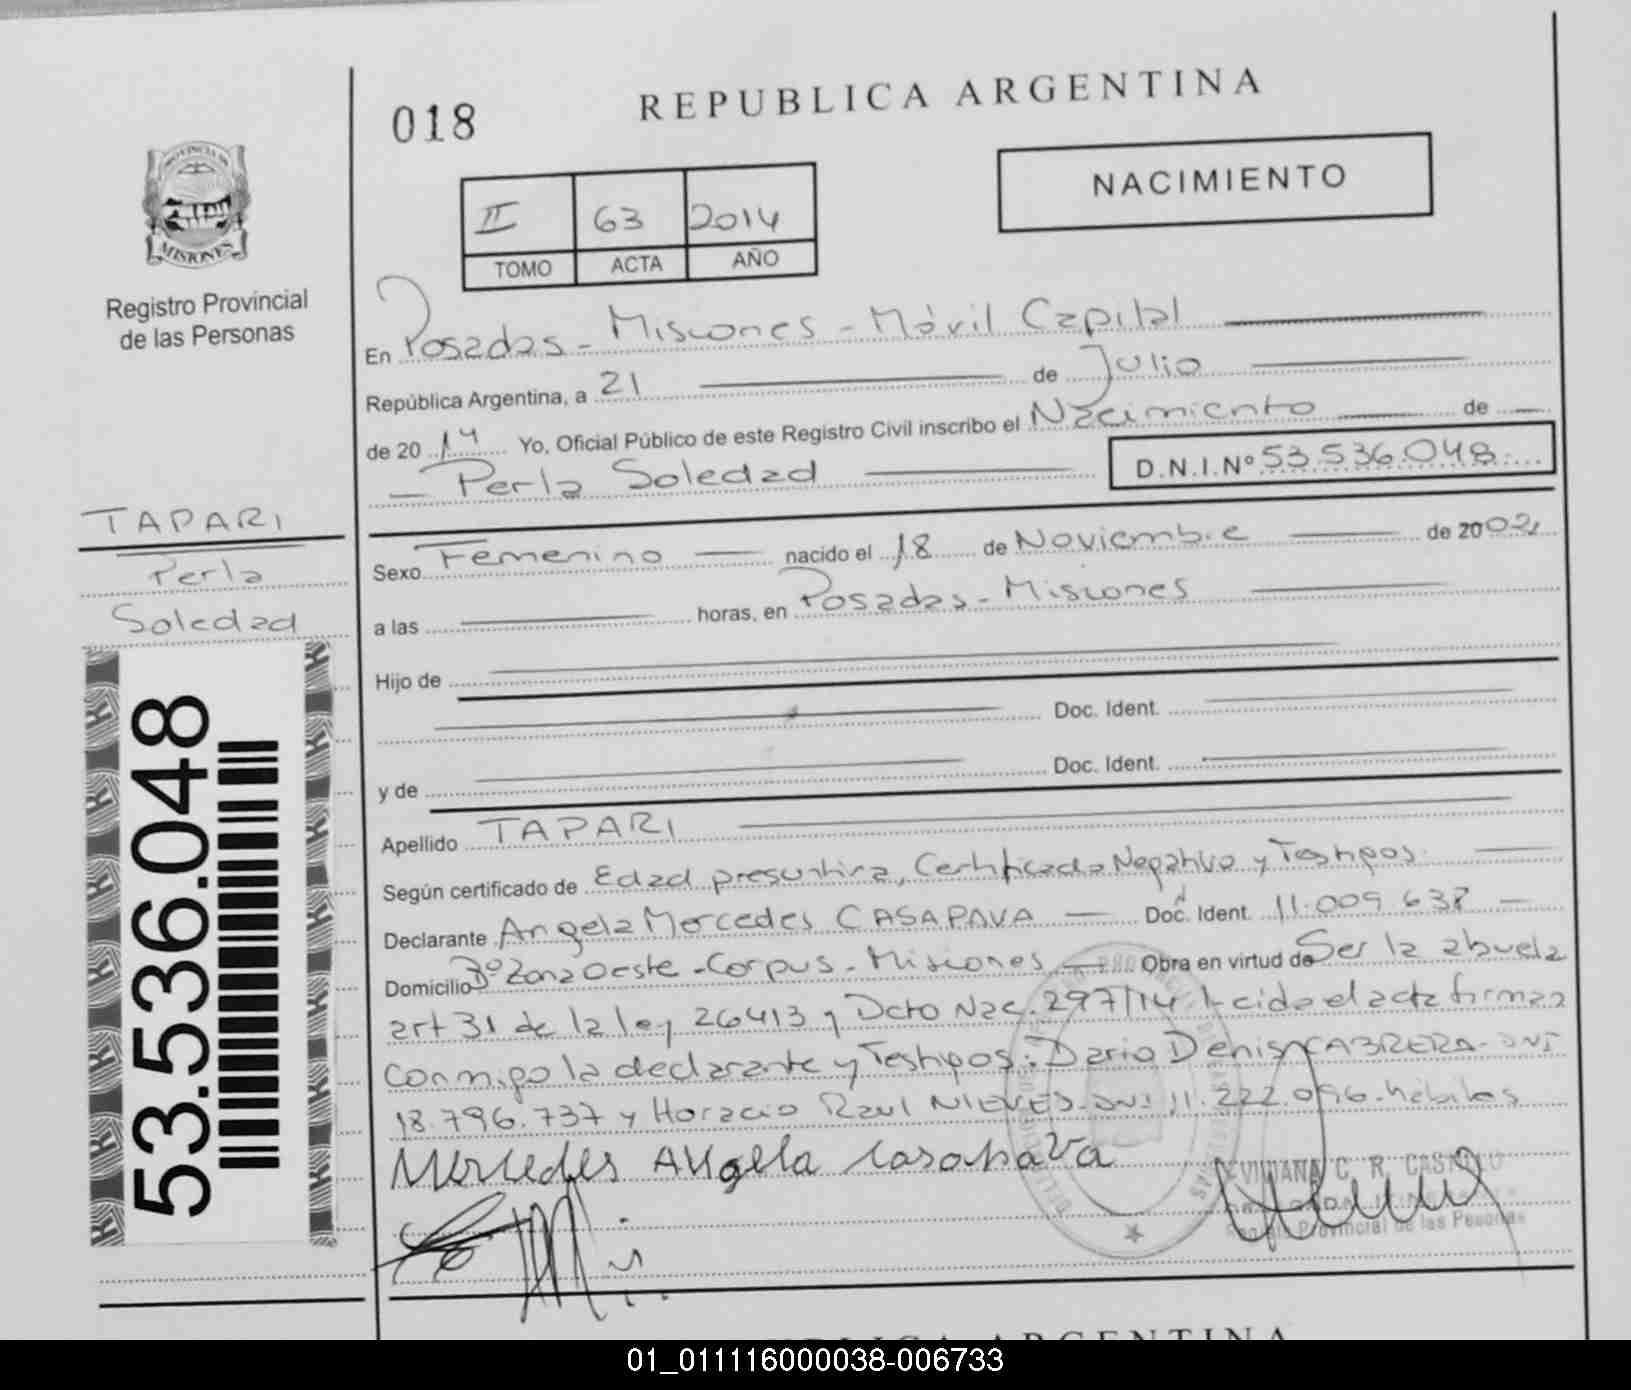 018
REPUBLICA ARGENTINA
NACIMIENTO
II 63 2014
TOMO ACTA AÑO
PROVINCIA DE
MISIONES
Registro Provincial
de las Personas
En Posadas - Misiones - Móvil Capital
República Argentina, a 21 de Julio
de 2014 Yo, Oficial Público de este Registro Civil inscribo el Nacimiento de
Perla Soledad D.N.I.Nº 53.536.048
TAPARI
Perla
Soledad
53.536.048
Sexo Femenino nacido el 18 de Noviembre de 20002
a las horas, en Posadas - Misiones
Hijo de
Doc. Ident.
y de Doc. Ident.
Apellido TAPARI
Según certificado de Edad presuntiva, Certificado Negativo y Testigos
Declarante Angela Mercedes CASAPAVA Doc. Ident. 11.009.637
Domicilio Bº Zona Oeste - Corpus - Misiones Obra en virtud de Ser la abuela
art 31 de la ley 26413 y Dcto Nac. 297/14 Leida el acta firman
conmigo la declarante y Testigos: Dario Denis CABRERA - DNI
18.796.737 y Horacio Raul NIEVES - DNI 11.222.096 - habiles
Mercedes Angela Casapava
VIVIANA C. R. CASTILLO
Registro Provincial de las Personas
REPUBLICA ARGENTINA
01_011116000038-006733